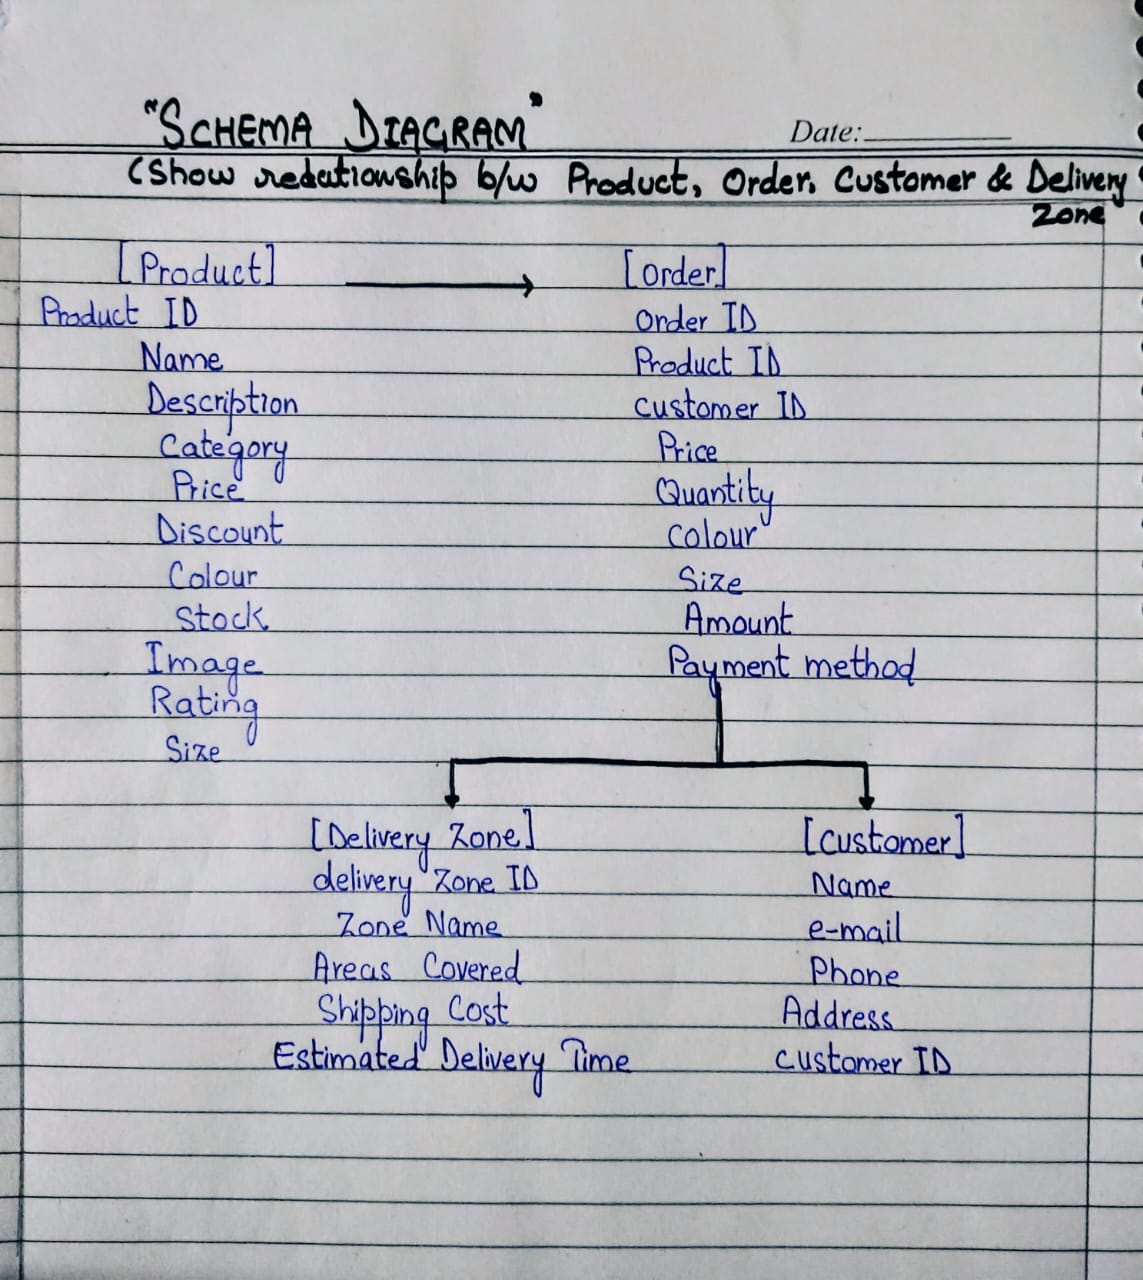 "SCHEMA DIAGRAM"
Date:
(Show redationship b/w Product, Order, Customer & Delivery
Zone
[Product]
Product ID
Name
Description
Category
Price
Discount
Colour
Stock
Image
Rating
Size
[Order]
Order ID
Product ID
customer ID
Price
Quantity
colour
Size
Amount
Payment method
[Delivery Zone]
delivery Zone ID
Zone Name
Areas Covered
Shipping Cost
Estimated Delivery Time
[customer]
Name
e-mail
Phone
Address
customer ID